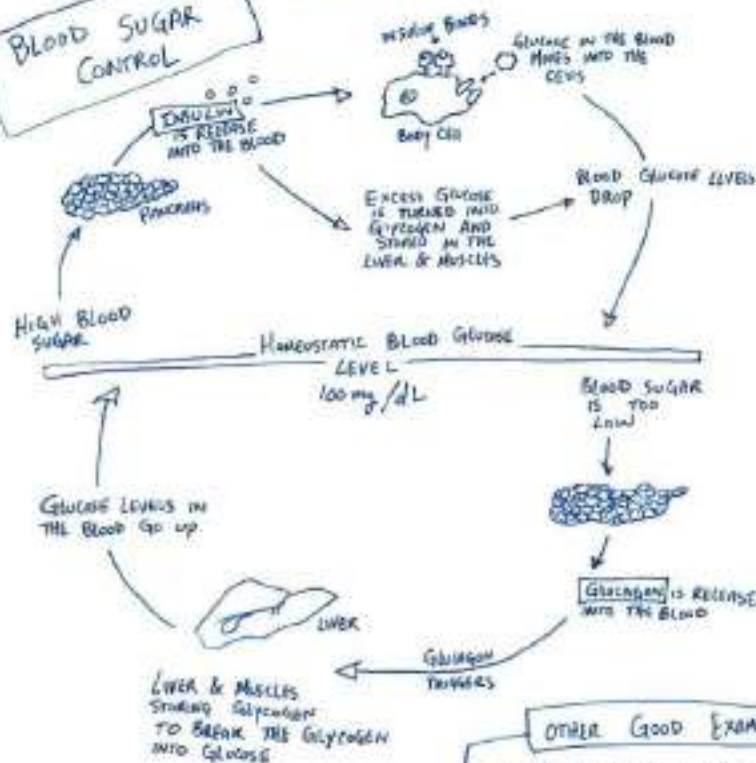 BLOOD SUGAR
CONTROL
INSULIN
IS RELEASE
INTO THE BLOOD
INSULIN BINDS
BODY CELL
GLUCOSE IN THE BLOOD
MOVES INTO THE
CELLS
PANCREAS
EXCESS GLUCOSE
IS TURNED INTO
GLYCOGEN AND
STORED IN THE
LIVER & MUSCLES
BLOOD GLUCOSE LEVELS
DROP
HIGH BLOOD
SUGAR
HOMEOSTATIC BLOOD GLUCOSE
LEVEL
100 mg/dL
BLOOD SUGAR
IS TOO
LOW
GLUCAGON IS RELEASE
INTO THE BLOOD
GLUCAGON
TRIGGERS
LIVER
LIVER & MUSCLES
STORING GLYCOGEN
TO BREAK THE GLYCOGEN
INTO GLUCOSE
GLUCOSE LEVELS IN
THE BLOOD GO UP.
OTHER GOOD EXAM